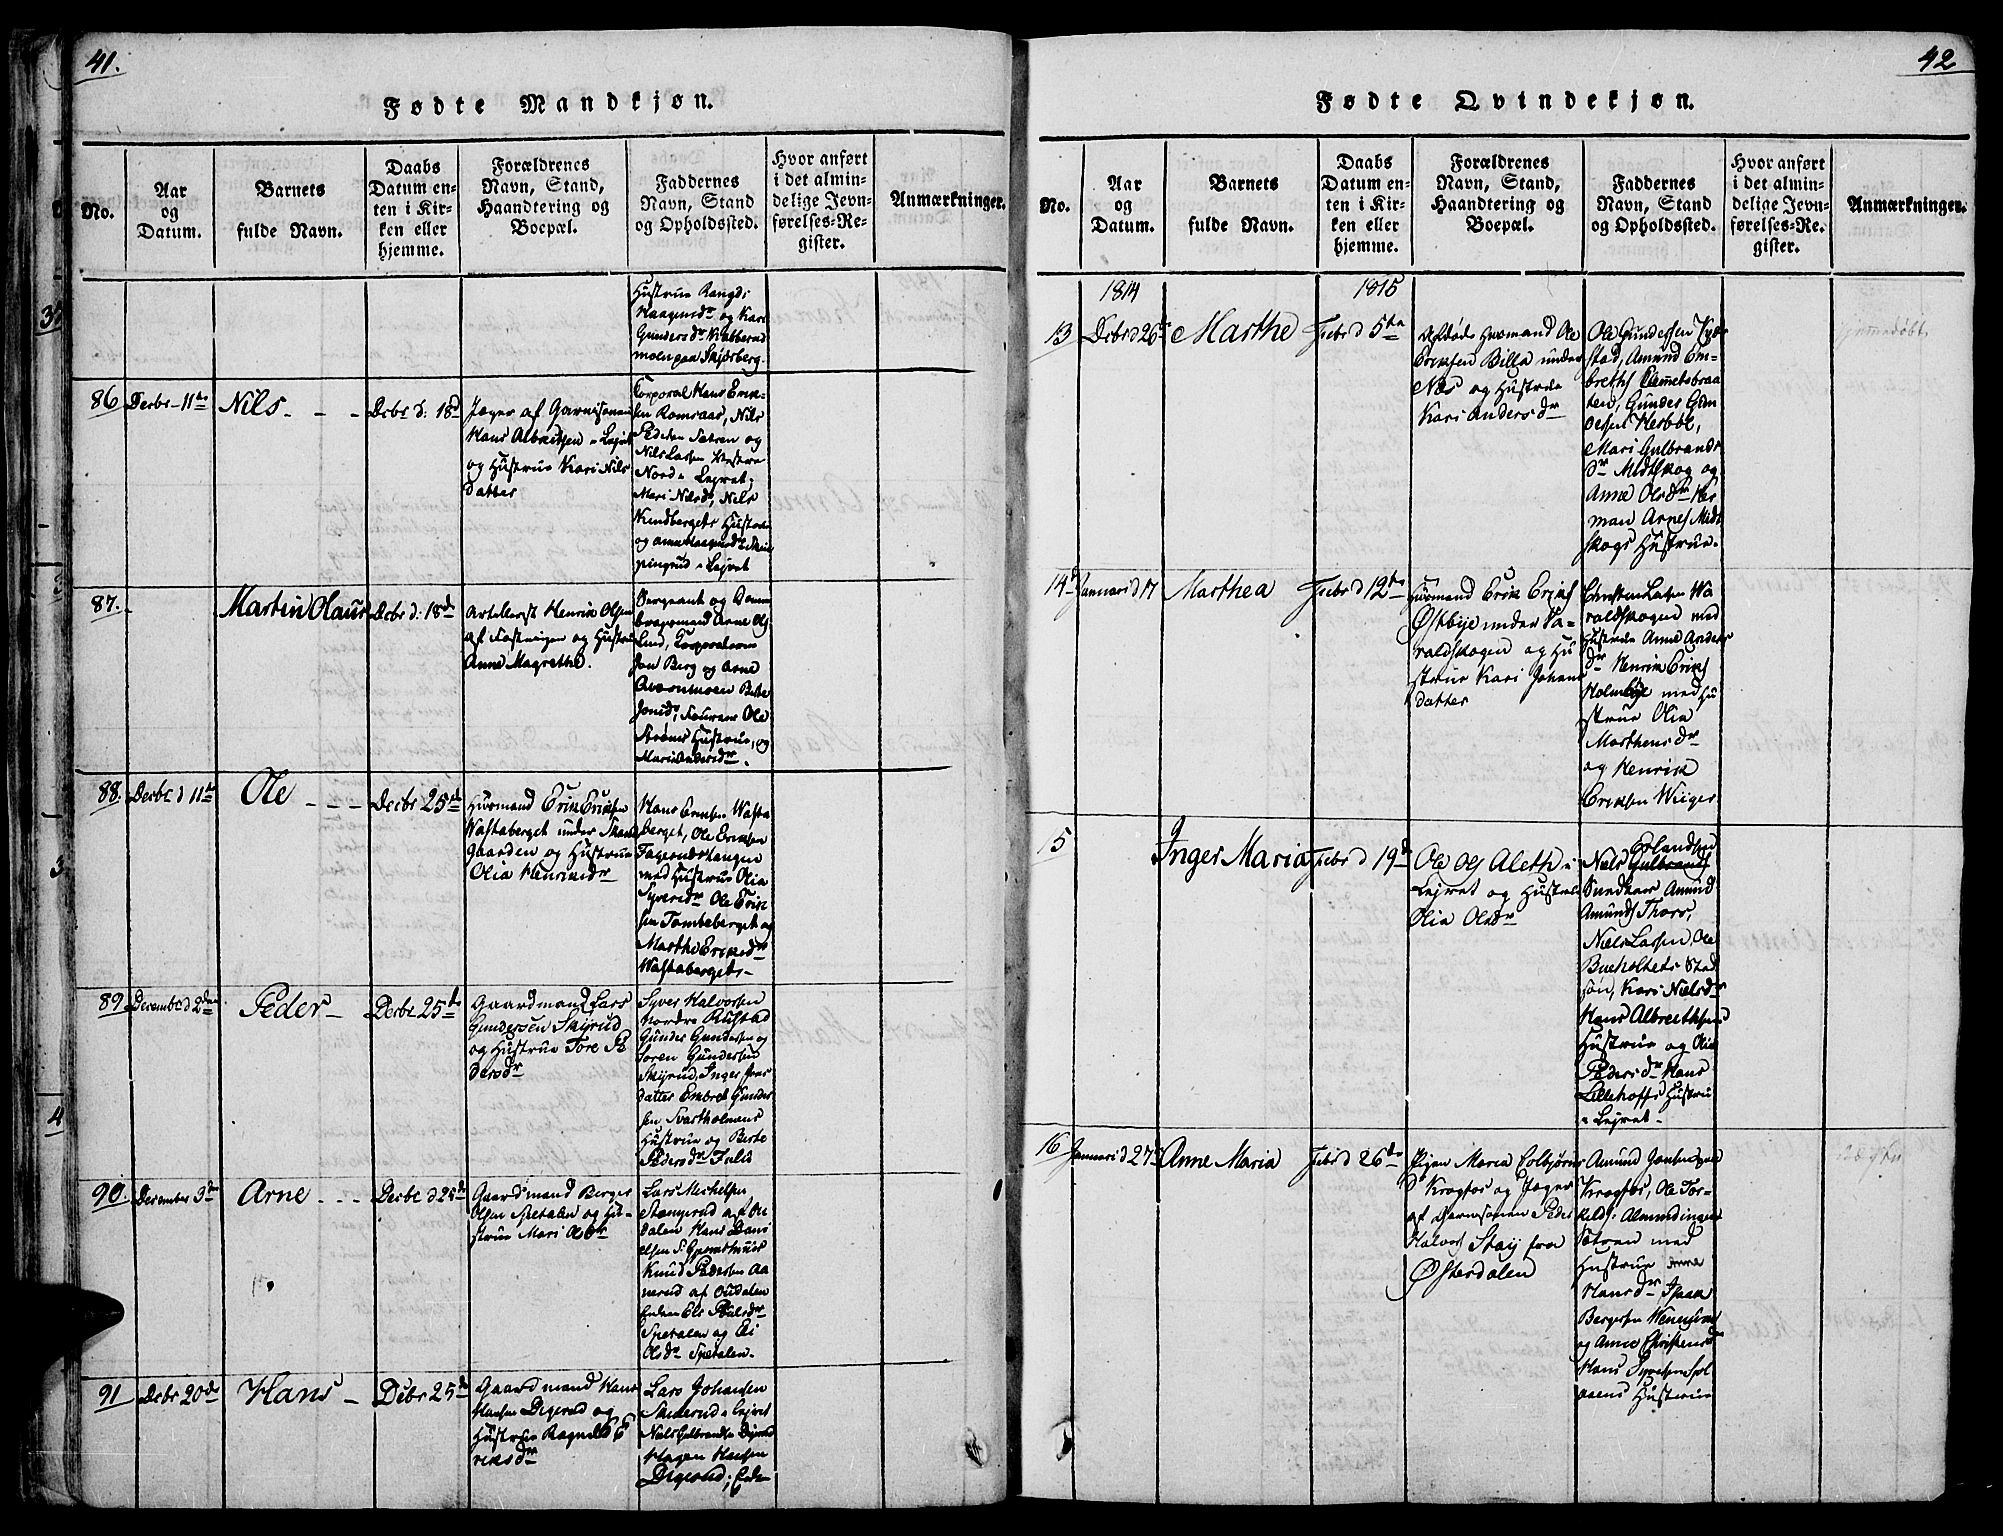 41.
Fødte Mandkjøn.
No.
Aar
og
Datum.
Barnets
fulde Navn.
Daabs
Datum en-
ten i Kir-
ken eller
hjemme.
Forældrenes
Navn, Stand,
Haandtering og
Boepæl.
Faddernes
Navn, Stand
og Opholdssted.
Hvor anført
i det almin-
delige Jevn-
førelses-Re-
gister.
Anmærkninger.
Hustrue
og Kari
paa Skjørberg.
86
Decbr - 11te
Nils - - -
Decbr d: 18d
Jæger af Garnisonen
Hans Albretsen
og Hustrue Kari Nils
datter
Corporal Hans Erik-
sen Romsaas, Nils
Pedersen Sætren og
Nils Larsen Vestre
Nord i Lejret,
Mari Nilsdr, Nils
Hustrue
i Lejret
87.
Martin Olaus
Decbr d: 18de
Artelerist Henrik Olsen
af Fæstningen og Hustrue
Anne Magrethe.
Sergeant og
Arne Ols
Lund, Corporalerne
Jon Berg og Arne
Berte
Jonsdr, Ole
Hustrue, og
Mari Andersdr.
88.
Decbr d 11te
Ole - - -
Decbr 25de
Huusmand Erik Eriksen
Wastaberget under
Gaarden og Hustrue
Olia Henriksdr
Hans Eriksen Wasta
berget, Ole Eriksen
med Hustrue Olia
Syversdr Ole Erik
sen Tombeberget og
Marthe Eriksdr
Wastaberget -
89
December d 2den
Peder -
Decbr 25de
Gaardmand Lars
Gundersen Skyrud
og Hustrue Tore Pe
dersdr
Syver Halvorsen
nordre Rustad
Gunder Gundersen og
Søren Gundersen
Skyrud, Inger
datter Embret Gunder
sen Svartholmens
Hustrue og Berte
Pedersdr
90.
December 3die
Arne - - -
Decbr d 26de
Gaardmand Berger
Olsen Spetalen og Hu-
strue Mari Olsdr
Lars Mechelsen
af Ou
dalen Hans Dani
elsen
Knud Pedersen Aa
nerud af Oudalen
Enken Eli Poulsdr
Spetalen og Eli
Olsdr Spetalen.
91
Decbr 20de
Hans -
Decbr 25de
Gaardmand Hans
Hansen Digerud og
Hustrue Ragnild E
riksdr
Lars Johansen
i Lejret
Niels Gulbrandsen Digerud
Hagen Hansen
Digerud; Enken
42
Fødte Qvindekjøn.
No.
Aar
og
Datum.
Barnets
fulde Navn.
Daabs
Datum en-
ten i Kir-
ken eller
hjemme.
Forældrenes
Navn, Stand,
Haandtering og
Boepæl.
Faddernes
Navn, Stand
og Opholdssted.
Hvor anført
i det almin-
delige Jevn-
førelses-Re-
gister.
Anmærkninger.
1814
1815
13
Decbr d 26de
Marthe
Febr d 5te
Afdøde Huusmand Ole
Eriksen Billa under
Næs og Hustrue
Kari Andersdr
Ole Gundersen
stad, Amund Em-
bretsen Klemetsbraa
ten, Gunder Gun
dersen Herbøl,
Mari Gulbrands
dr Midtskog og
Anne Olsdr
man Arnes Midt
skogs Hustrue.
hjemmedøbt.
14
Januari d 17
Marthea
Febr d 12te
Huusmand Erik Eriks
Østbye under Va-
raldskogen og Hu
strue Kari Johans
datter
Christen Larsen Wa
raldskogen med
Hustrue Anne Anders
dr Henrik Eriks
Holmbye med Hu
strue Olia
Marthensdr
og Henrik
Eriksen Wiiger
15
Inger Maria
Febr d 19de
Ole Ols Aleth i
Lejret og Hustrue
Olia Olsdr
Erlandsen
Niels Gulbrands
Sundkær Amund
Amunds Thors,
Niels Larsen, Ole
Bueholtets Stad
søn, Kari Nielsdr
Hans Albretsens
Hustrue og Olia
Pedersdr Hans
Lillehoffs Hustrue
i Lejret.
16
Januari d 27de
Anne Maria
Febr d 26de
Pigen Maria Eolbjørns
d Krogfos og Jæger
af Garnisonen Peder
Halvors Staij fra
Østerdalen
Amund Jonsen
Krogfos, Ole Tor-
kilds: Almindingen
Sætren med
Hustrue Anne
Hansdr Isaak
Bergersen
og Anne Christensdr
Hans Syversen
Hustrue